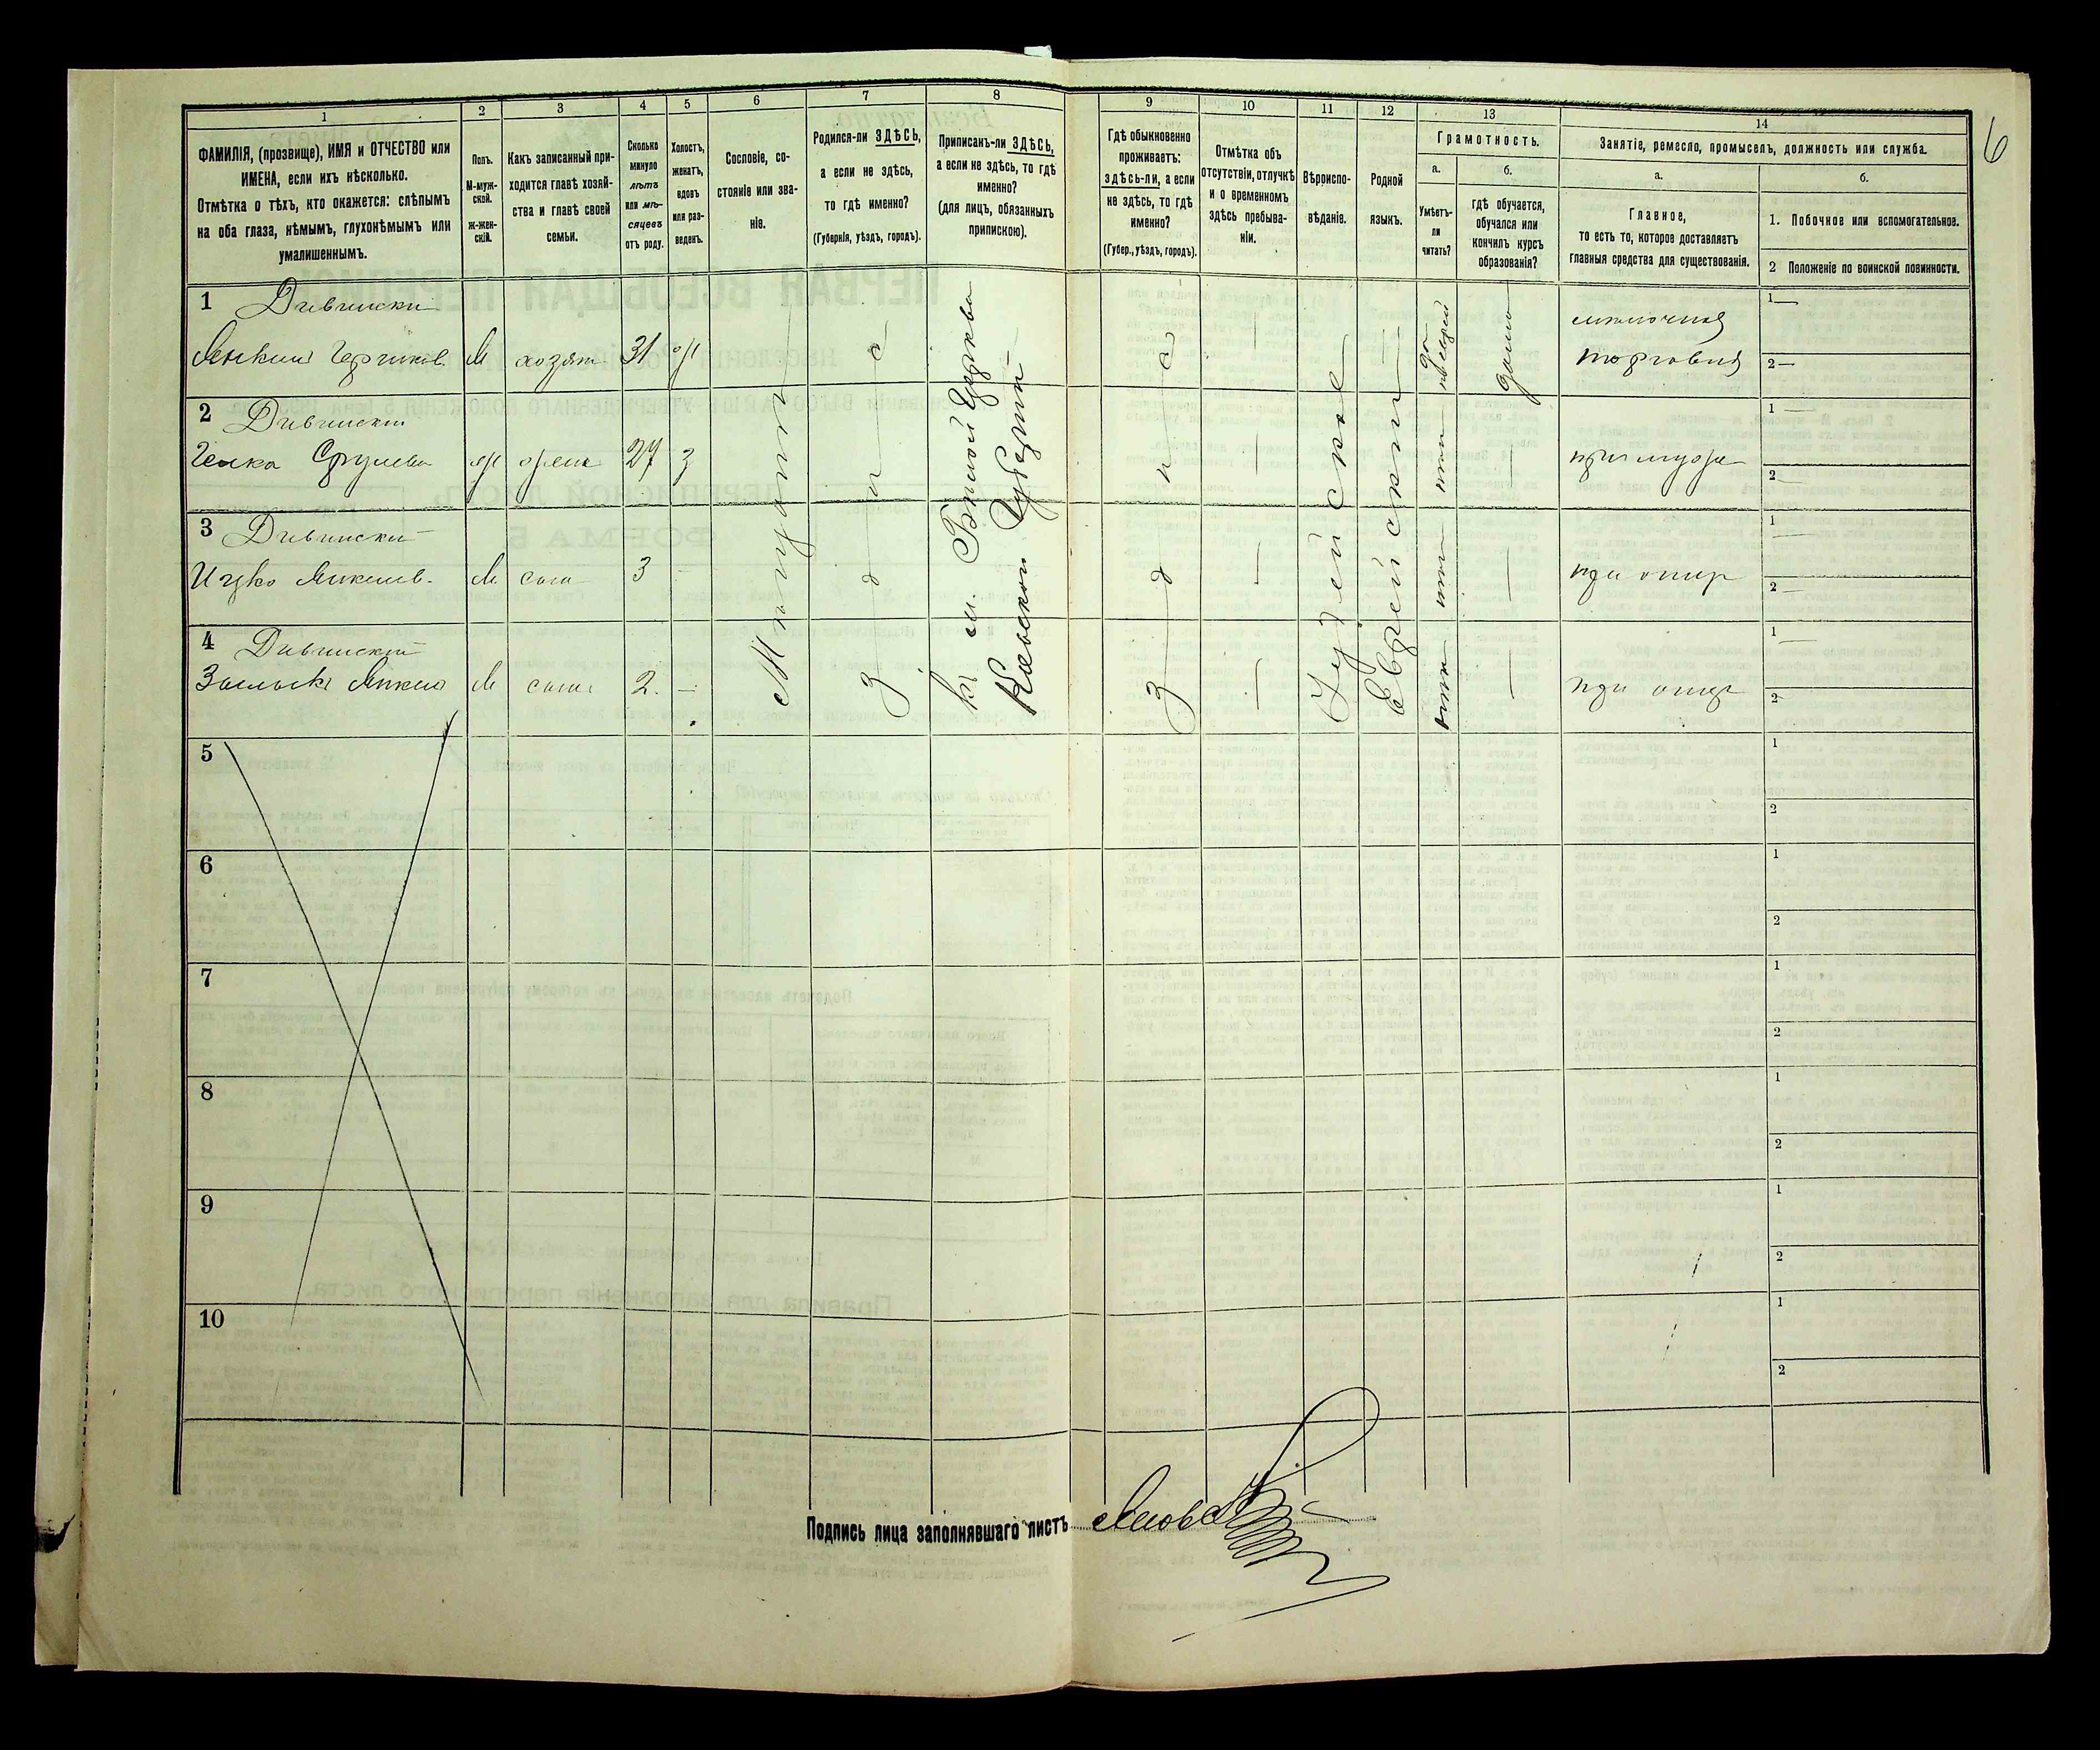 6
1 2 3 4 5 6 7 8 9 10 11 12 13 14
ФАМИЛІЯ, (прозвище), ИМЯ и ОТЧЕСТВО или
ИМЕНА, если ихъ нѣсколько.
Отмѣтка о тѣхъ, кто окажется: слѣпымъ
на оба глаза, нѣмымъ, глухонѣмымъ или
умалишеннымъ.
Полъ.
М-муж-
ской.
ж-жен-
скій.
Какъ записанный при-
ходится главѣ хозяй-
ства и главѣ своей
семьи.
Сколько
минуло
лѣтъ
или мѣ-
сяцевъ
отъ роду.
Холостъ,
женатъ,
вдовъ
или раз-
веденъ.
Сословіе, со-
стояніе или зва-
ніе.
Родился-ли ЗДѢСЬ,
а если не здѣсь,
то гдѣ именно?
(Губернія, уѣздъ, городъ).
Приписанъ-ли ЗДѢСЬ,
а если не здѣсь, то гдѣ
именно?
(для лицъ, обязанныхъ
припискою).
Гдѣ обыкновенно
проживаетъ:
здѣсь-ли, а если
не здѣсь, то гдѣ
именно?
(Губер., уѣздъ, городъ).
Отмѣтка объ
отсутствіи, отлучкѣ
и о временномъ
здѣсь пребыва-
ніи.
Вѣроиспо-
вѣданіе.
Родной
языкъ.
Грамотность.
а.
Умѣетъ-
ли
читать?
б.
гдѣ обучается,
обучался или
кончилъ курсъ
образованія?
Занятіе, ремесло, промыселъ, должность или служба.
а.
Главное,
то есть то, которое доставляетъ
главныя средства для существованія.
б.
1. Побочное или вспомогательное.
2 Положеніе по воинской повинности.
1 Дивински
М хозяин 31 ж
мелочная
торговля
дома
1 —
2 —
2 Дивински
ж жена 27 з
нѣт
при муже
1 —
2 —
3 Дивински
Ицко
М сын 3 —
нѣт
при отце
1 —
2 —
4 Дивински
М сын 2. —
нѣт
при отце
1 —
2 —
Мещанин
здѣсь
к м. Бѣлой Церкви
Кіевской Губерніи
здѣсь
Іудейское
Еврейский
5
1
2
6
1
2
7
1
2
8
1
2
9
1
2
10
1
2
Подпись лица заполнявшаго листъ